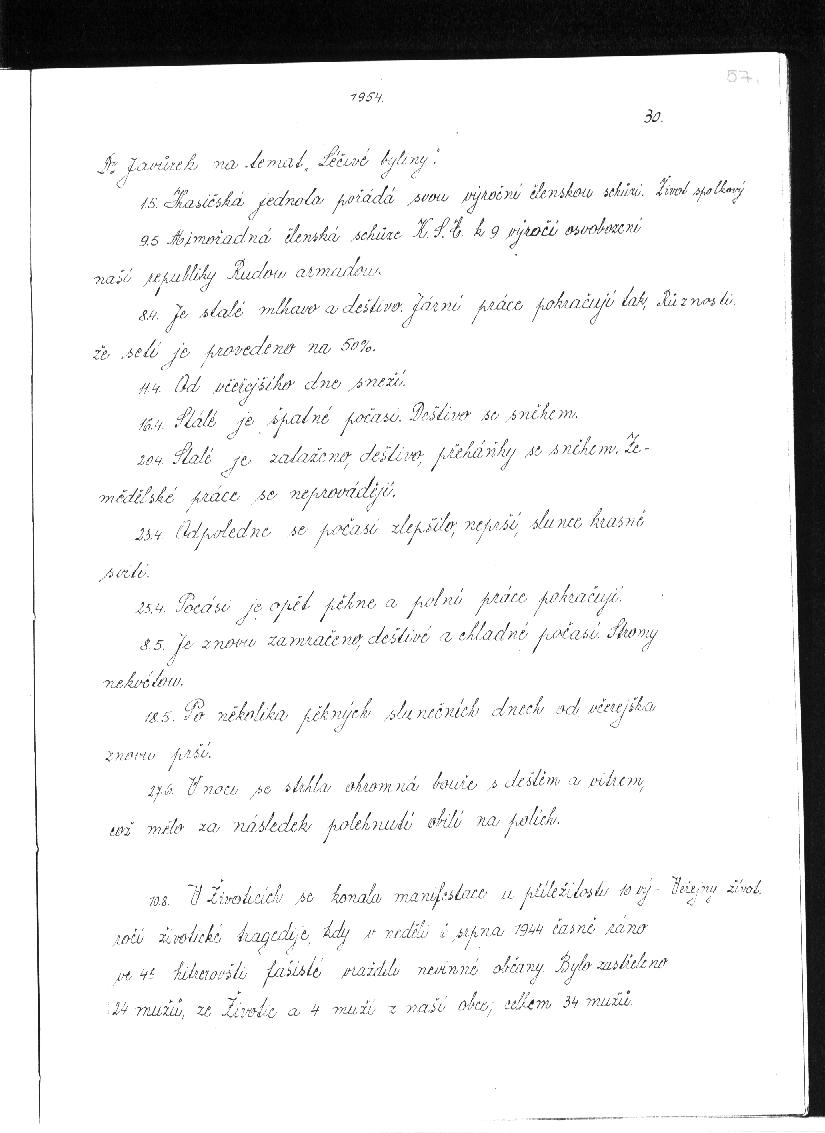 57.
1954.
30.
Dr Javůrek na temat „Léčivé byliny“.
1.5. Hasičská jednota pořádá svou výroční členskou schůzi. Život spolkový
9.5 Mimořadná členská schůze K.S.Č. k 9 výročí osvobození
naší republiky Rudou armadou.
8.4. Je stalé mlhavo a deštivo. Jární práce pokračují tak, Různosti.
že setí je provedeno na 50%.
11.4. Od včerejšího dne sneží.
16.4. Stálé je špatné počasi. Deštivo se sněhem.
20.4. Stalé je zataženo, deštivo, přeháňky se sněhem. Ze-
mědělské práce se neprovádějí.
23.4. Odpoledne se počasí zlepšilo, neprší, slunce krasně
svítí.
25.4. Pocási je opět pěkne a polní práce pokračují.
8.5. Je znovu zamračeno, deštivé a chladné počasí. Stromy
nekvétou.
18.5. Po několika pěkných slunečních dnech od včerejška
znovu prší.
27.6. V noci se strhla ohromná bouře s deštěm a vitrem,
což mělo za následek polehnutí obilí na polích.
10.8. V Životicích se konala manifestace u příležitosti 10 vý- Veřejny život.
ročí životické tragedije, kdy v neděli 6 srpna 1944 časně ráno
ve 4h hitlerovští fašisté vraždili nevinné občany. Bylo zastřeleno
24 mužů, ze Životic a 4 muži z naší obce, celkem 34 mužů.